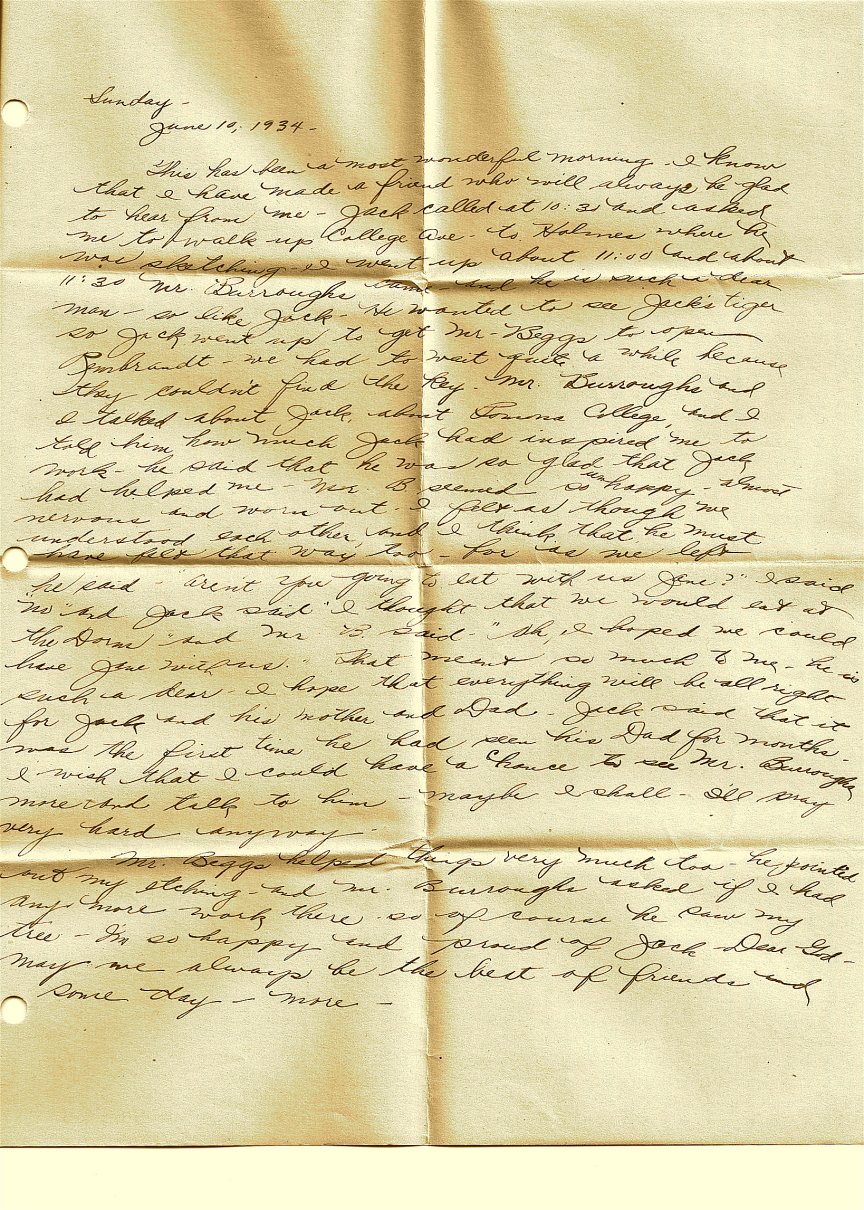 Sunday -
June 10, 1934 -
This has been a most wonderful morning - I know
that I have made a friend who will always be glad
to hear from me - Jack called at 10:30 and asked
me to walk up College Ave - to Holmes where he
was sketching - I went up about 11:00 and about
11:30 Mr. Burroughs came and he is such a dear
man - so like Jack - He wanted to see Jack's tiger
so Jack went up to get Mr. Beggs to open
Rembrandt - we had to wait quite a while because
they couldn't find the key. Mr. Burroughs and
I talked about Jack, about Pomona College, and I
told him how much Jack had inspired me to
work - he said that he was so glad that Jack
had helped me - Mr. B. seemed so unhappy - almost
nervous and worn out - I felt as though we
understood each other, and I think that he must
have felt that way too - for as we left
he said - "aren't you going to eat with us Jene?" I said
"no" and Jack said "I thought that we would eat at
the Dorm" and Mr B. said - "Oh, I hoped we could
have Jene with us." That meant so much to me - he is
such a dear - I hope that everything will be all right
for Jack and his mother and Dad - Jack said that it
was the first time he had seen his Dad for months -
I wish that I could have a chance to see Mr. Burroughs
more and talk to him - maybe I shall - I'll pray
very hard anyway -
Mr. Beggs helped things very much too - he pointed
out my etching - and Mr. Burroughs asked if I had
any more work there - so of course he saw my
tree - I'm so happy and proud of Jack - Dear God -
may we always be the best of friends and
some day - more -